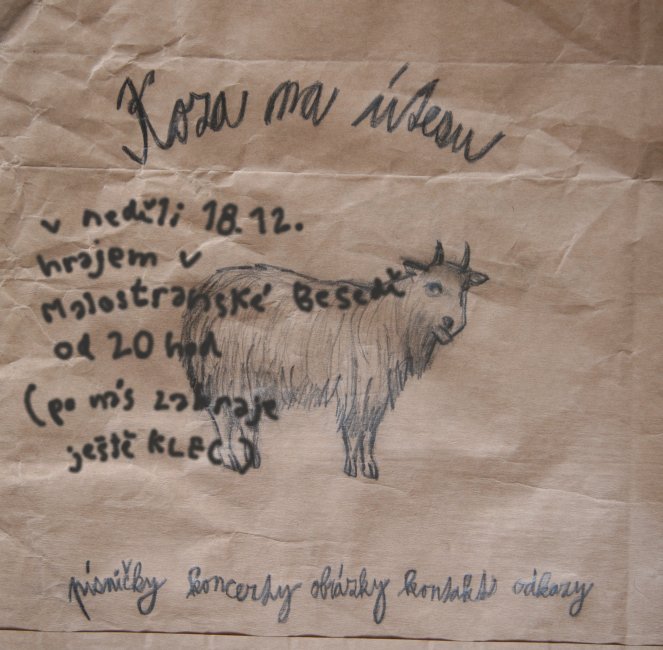 Koza na útesu
v neděli 18.12.
hrajem v
Malostranské Besedě
od 20 hod
(po nás zahraje
ještě KLEC)
písničky koncerty obrázky kontakt odkazy